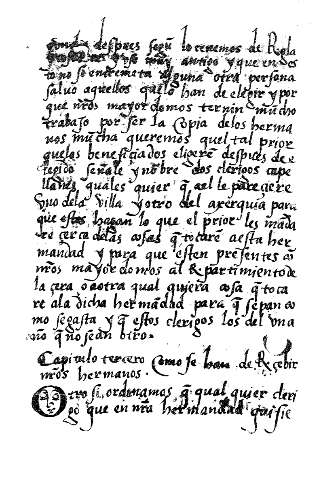 despues segun lo tenemos de Regla
y uso muy antigo y que en es
to no se entremeta alguna otra persona
salvo aquellos que lo han de elegir y por
que nr̃os mayordomos ternin mucho
trabajo por ser la copia delos herma
nos mucha queremos quel tal prior
quelos beneficiados eligere despues de e
legido señale y nõbre dos clerigos cape
llanes quales quier q̃ a el le paresçere
vno dela villa y otro del axerquia para
que estos hagan lo que el prior les mãda
re çerca delas cosas q̃ tocarẽ a esta her
mandad y para que esten presentes cõ
nr̃os mayordomos al Repartimiento de
la çera o a otra qual quiera cosa q̃ toca
re ala dicha hermãdad para q̃ sepan co
mo se gasta y q̃ estos clerigos los del vn a
año q̃ no seãn otro
Capitulo tercero como se han de Resçebir
nr̃os hermanos.
Otro si ordenamos q̃ qual quier cleri
go que en nr̃a hermandad quisie